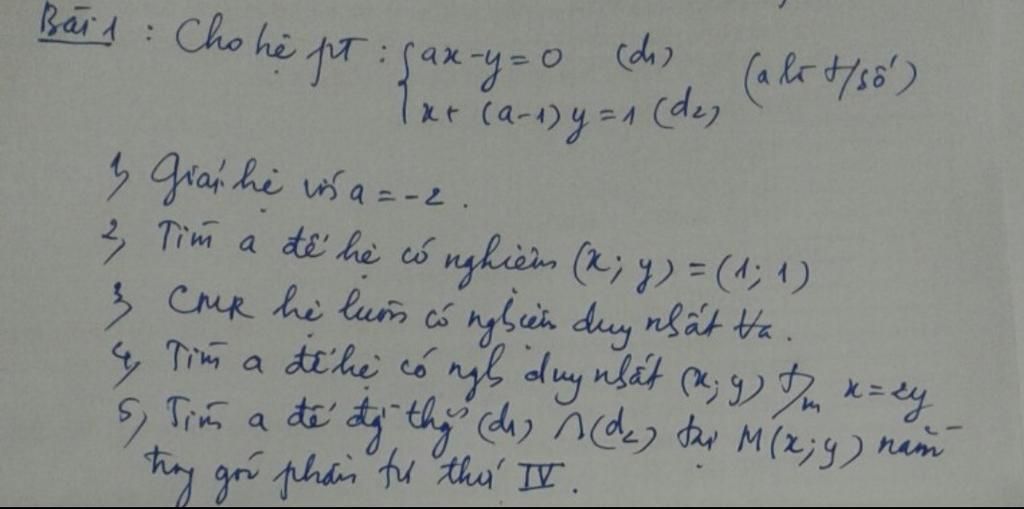 Bài 1 : Cho hệ pT : { ax - y = 0 (d1)
x + (a-1) y = 1 (d2) (a là t/số)
1, Giải hệ với a = -2 .
2, Tìm a để hệ có nghiệm (x; y) = (1; 1)
3, CMR hệ luôn có nghiệm duy nhất ∀a .
4, Tìm a để hệ có ngh duy nhất (x; y) t/m x = 2y
5, Tìm a để đg thg (d1) ∩ (d2) tại M(x; y) nằm
trog góc phần tư thứ IV .